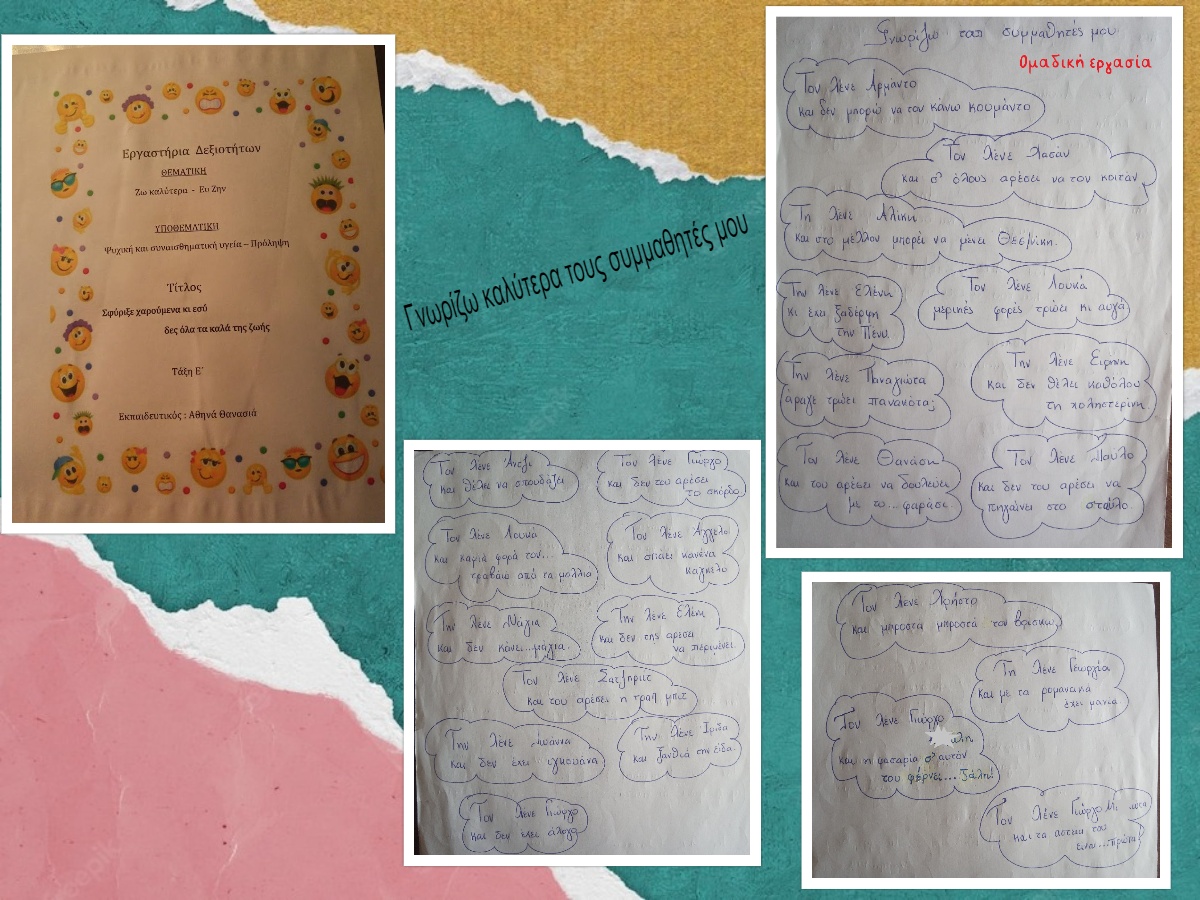 Εργαστήρια Δεξιοτήτων
ΘΕΜΑΤΙΚΗ
Ζω καλύτερα - Ευ Ζην
ΥΠΟΘΕΜΑΤΙΚΗ
Ψυχική και συναισθηματική υγεία – Πρόληψη
Τίτλος
Σφύριξε χαρούμενα κι εσύ
δες όλα τα καλά της ζωής
Τάξη Ε΄
Εκπαιδευτικός : Αθηνά Θανασιά
Γνωρίζω καλύτερα τους συμμαθητές μου
Γνωρίζω τους συμμαθητές μου
Ομαδική εργασία
Τον λένε Αρμάντο
και δεν μπορώ να τον κάνω κουμάντο
Τον λένε Χασάν
και σ' όλους αρέσει να τον κοιτάν
Τη λένε Αλίκη
και στο μέλλον μπορεί να μένει Θεσ/νίκη.
Την λένε Ελένη
κι έχει ξαδέρφη
την Πένυ.
Τον λένε Λουκά
μερικές φορές τρώει κι αυγά
Την λένε Παναγιώτα
άραγε τρώει πανακότα;
Την λένε Ειρήνη
και δεν θέλει καθόλου
τη χοληστερίνη.
Τον λένε Θανάση
και του αρέσει να δουλεύει
με το... φαράσι.
Τον λένε Παύλο
και δεν του αρέσει να
πηγαίνει στο στάυλο.
Τον λένε
και θέλει να σπουδάζει
Τον λένε Γιώργο
και δεν του αρέσει
το σκόρδο
Τον λένε Λουκά
και καμιά φορά τον...
τραβάω από τα μαλλιά
Τον λένε Άγγελο
και σπάει κανένα
κάγκελο
Την λένε Μάγια
και δεν κάνει...μάγια.
Την λένε Ελένη
και δεν της αρέσει
να περιμένει.
Τον λένε
και του αρέσει η τραπ μπιτ
Την λένε Ιωάννα
και δεν έχει ιγκουάνα
Την λένε Ίριδα
και ξανθιά την είδα.
Τον λένε Γιώργο
και δεν έχει άλογο
Τον λένε Χρήστο
και μπροστά μπροστά τον βρίσκω
Τη λένε Γεωργία
και με τα ρομανικά
έχει μανία.
Τον λένε Γιώργο
και η φασαρία σ' αυτόν
του φέρνει... ζάλη!
Τον λένε Γιώργο
και τα αστεία του
είναι...πρώτα!